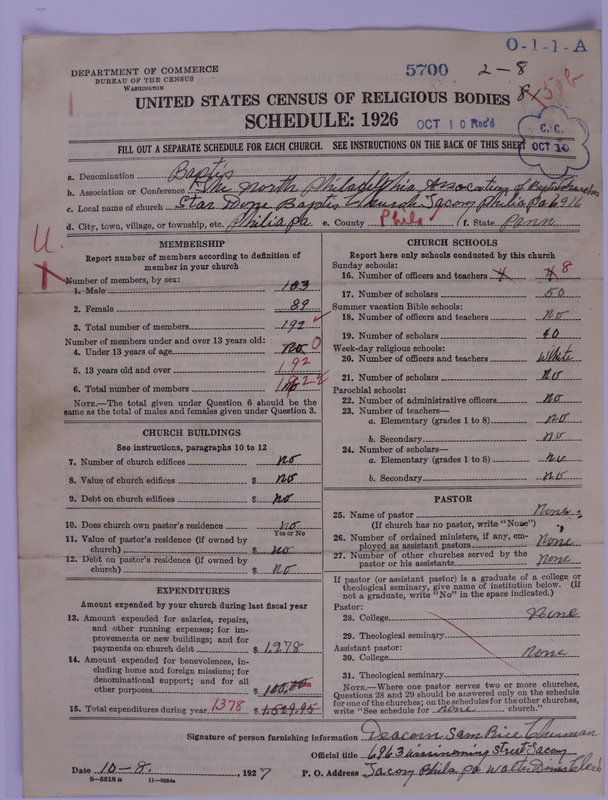 O-1-1-A
DEPARTMENT OF COMMERCE
BUREAU OF THE CENSUS
WASHINGTON
5700 2-8
UNITED STATES CENSUS OF RELIGIOUS BODIES
SCHEDULE: 1926
OCT 10 Rec'd
C. C.
OCT 10
FILL OUT A SEPARATE SCHEDULE FOR EACH CHURCH. SEE INSTRUCTIONS ON THE BACK OF THIS SHEET
a. Denomination Baptis
b. Association or Conference The North Philadelphia Association of Baptist
c. Local name of church Star Baptis Church Tacony Philia Pa 6916
d. City, town, village, or township, etc. Philia pa. e. County Phila (f. State Penn
MEMBERSHIP
Report number of members according to definition of
member in your church
Number of members, by sex:
1. Male 103
2. Female 89
3. Total number of members 192
Number of members under and over 13 years old:
4. Under 13 years of age no 0
5. 13 years old and over 192
6. Total number of members
NOTE.—The total given under Question 6 should be
same as the total of males and females given under Question 3.
CHURCH BUILDINGS
See instructions, paragraphs 10 to 12
7. Number of church edifices no
8. Value of church edifices $ no
9. Debt on church edifices $ no
10. Does church own pastor's residence no
Yes or No
11. Value of pastor's residence (if owned by
church) $ no
12. Debt on pastor's residence (if owned by
church) $ no
EXPENDITURES
Amount expended by your church during last fiscal year
13. Amount expended for salaries, repairs,
and other running expenses; for im-
provements or new buildings; and for
payments on church debt $ 1,278
14. Amount expended for benevolences, in-
cluding home and foreign missions; for
denominational support; and for all
other purposes $ 100,00
15. Total expenditures during year 1378 $ 1,529.95
CHURCH SCHOOLS
Report here only schools conducted by this church
Sunday schools:
16. Number of officers and teachers 8
17. Number of scholars 50
Summer vacation Bible schools:
18. Number of officers and teachers no
19. Number of scholars 40
Week-day religious schools:
20. Number of officers and teachers White
21. Number of scholars no
Parochial schools:
22. Number of administrative officers no
23. Number of teachers—
a. Elementary (grades 1 to 8) no
b. Secondary no
24. Number of scholars—
a. Elementary (grades 1 to 8) no
b. Secondary no
PASTOR
25. Name of pastor None
(If church has no pastor, write "None")
26. Number of ordained ministers, if any, em-
ployed as assistant pastors None
27. Number of other churches served by the
pastor or his assistants None
If pastor (or assistant pastor) is a graduate of a college or
theological seminary, give name of institution below. (If
not a graduate, write "No" in the space indicated.)
Pastor:
28. College None
29. Theological seminary
Assistant pastor:
30. College None
31. Theological seminary
NOTE.—Where one pastor serves two or more churches,
Questions 28 and 29 should be answered only on the schedule
for one of the churches; on the schedules for the other churches,
write "See schedule for none church."
Signature of person furnishing information Deacon Sam Rice
Official title 6963 Street Tacony
Date 10-8, 1927 P. O. Address Tacony Phila pa Walter
8-5518a 11-9554a